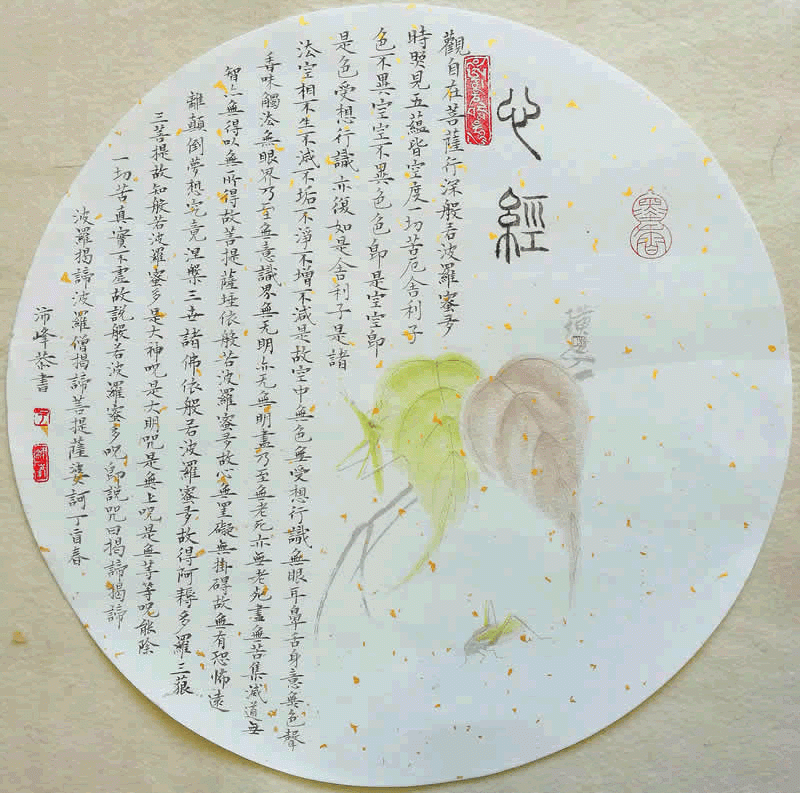 墨香
心經
觀自在菩薩行深般若波羅蜜多
時照見五蘊皆空度一切苦厄舍利子
色不異空空不異色色即是空空即
是色受想行識亦復如是舍利子是諸
法空相不生不滅不垢不淨不增不減是故空中無色無受想行識無眼耳鼻舌身意無色聲
香味觸法無眼界乃至無意識界無无明亦无無明盡乃至無老死亦無老死盡無苦集滅道無
智亦無得以無所得故菩提薩埵依般若波羅蜜多故心無罣礙無掛碍故無有恐怖遠
離顛倒夢想究竟涅槃三世諸佛依般若波羅蜜多故得阿耨多羅三藐
三菩提故知般若波羅蜜多是大神呪是大明咒是無上呪是無等等呪能除
一切苦真實不虛故說般若波羅蜜多呪即說咒曰揭諦揭諦
波羅揭諦波羅僧揭諦菩提薩婆訶丁酉春
沛峰恭書